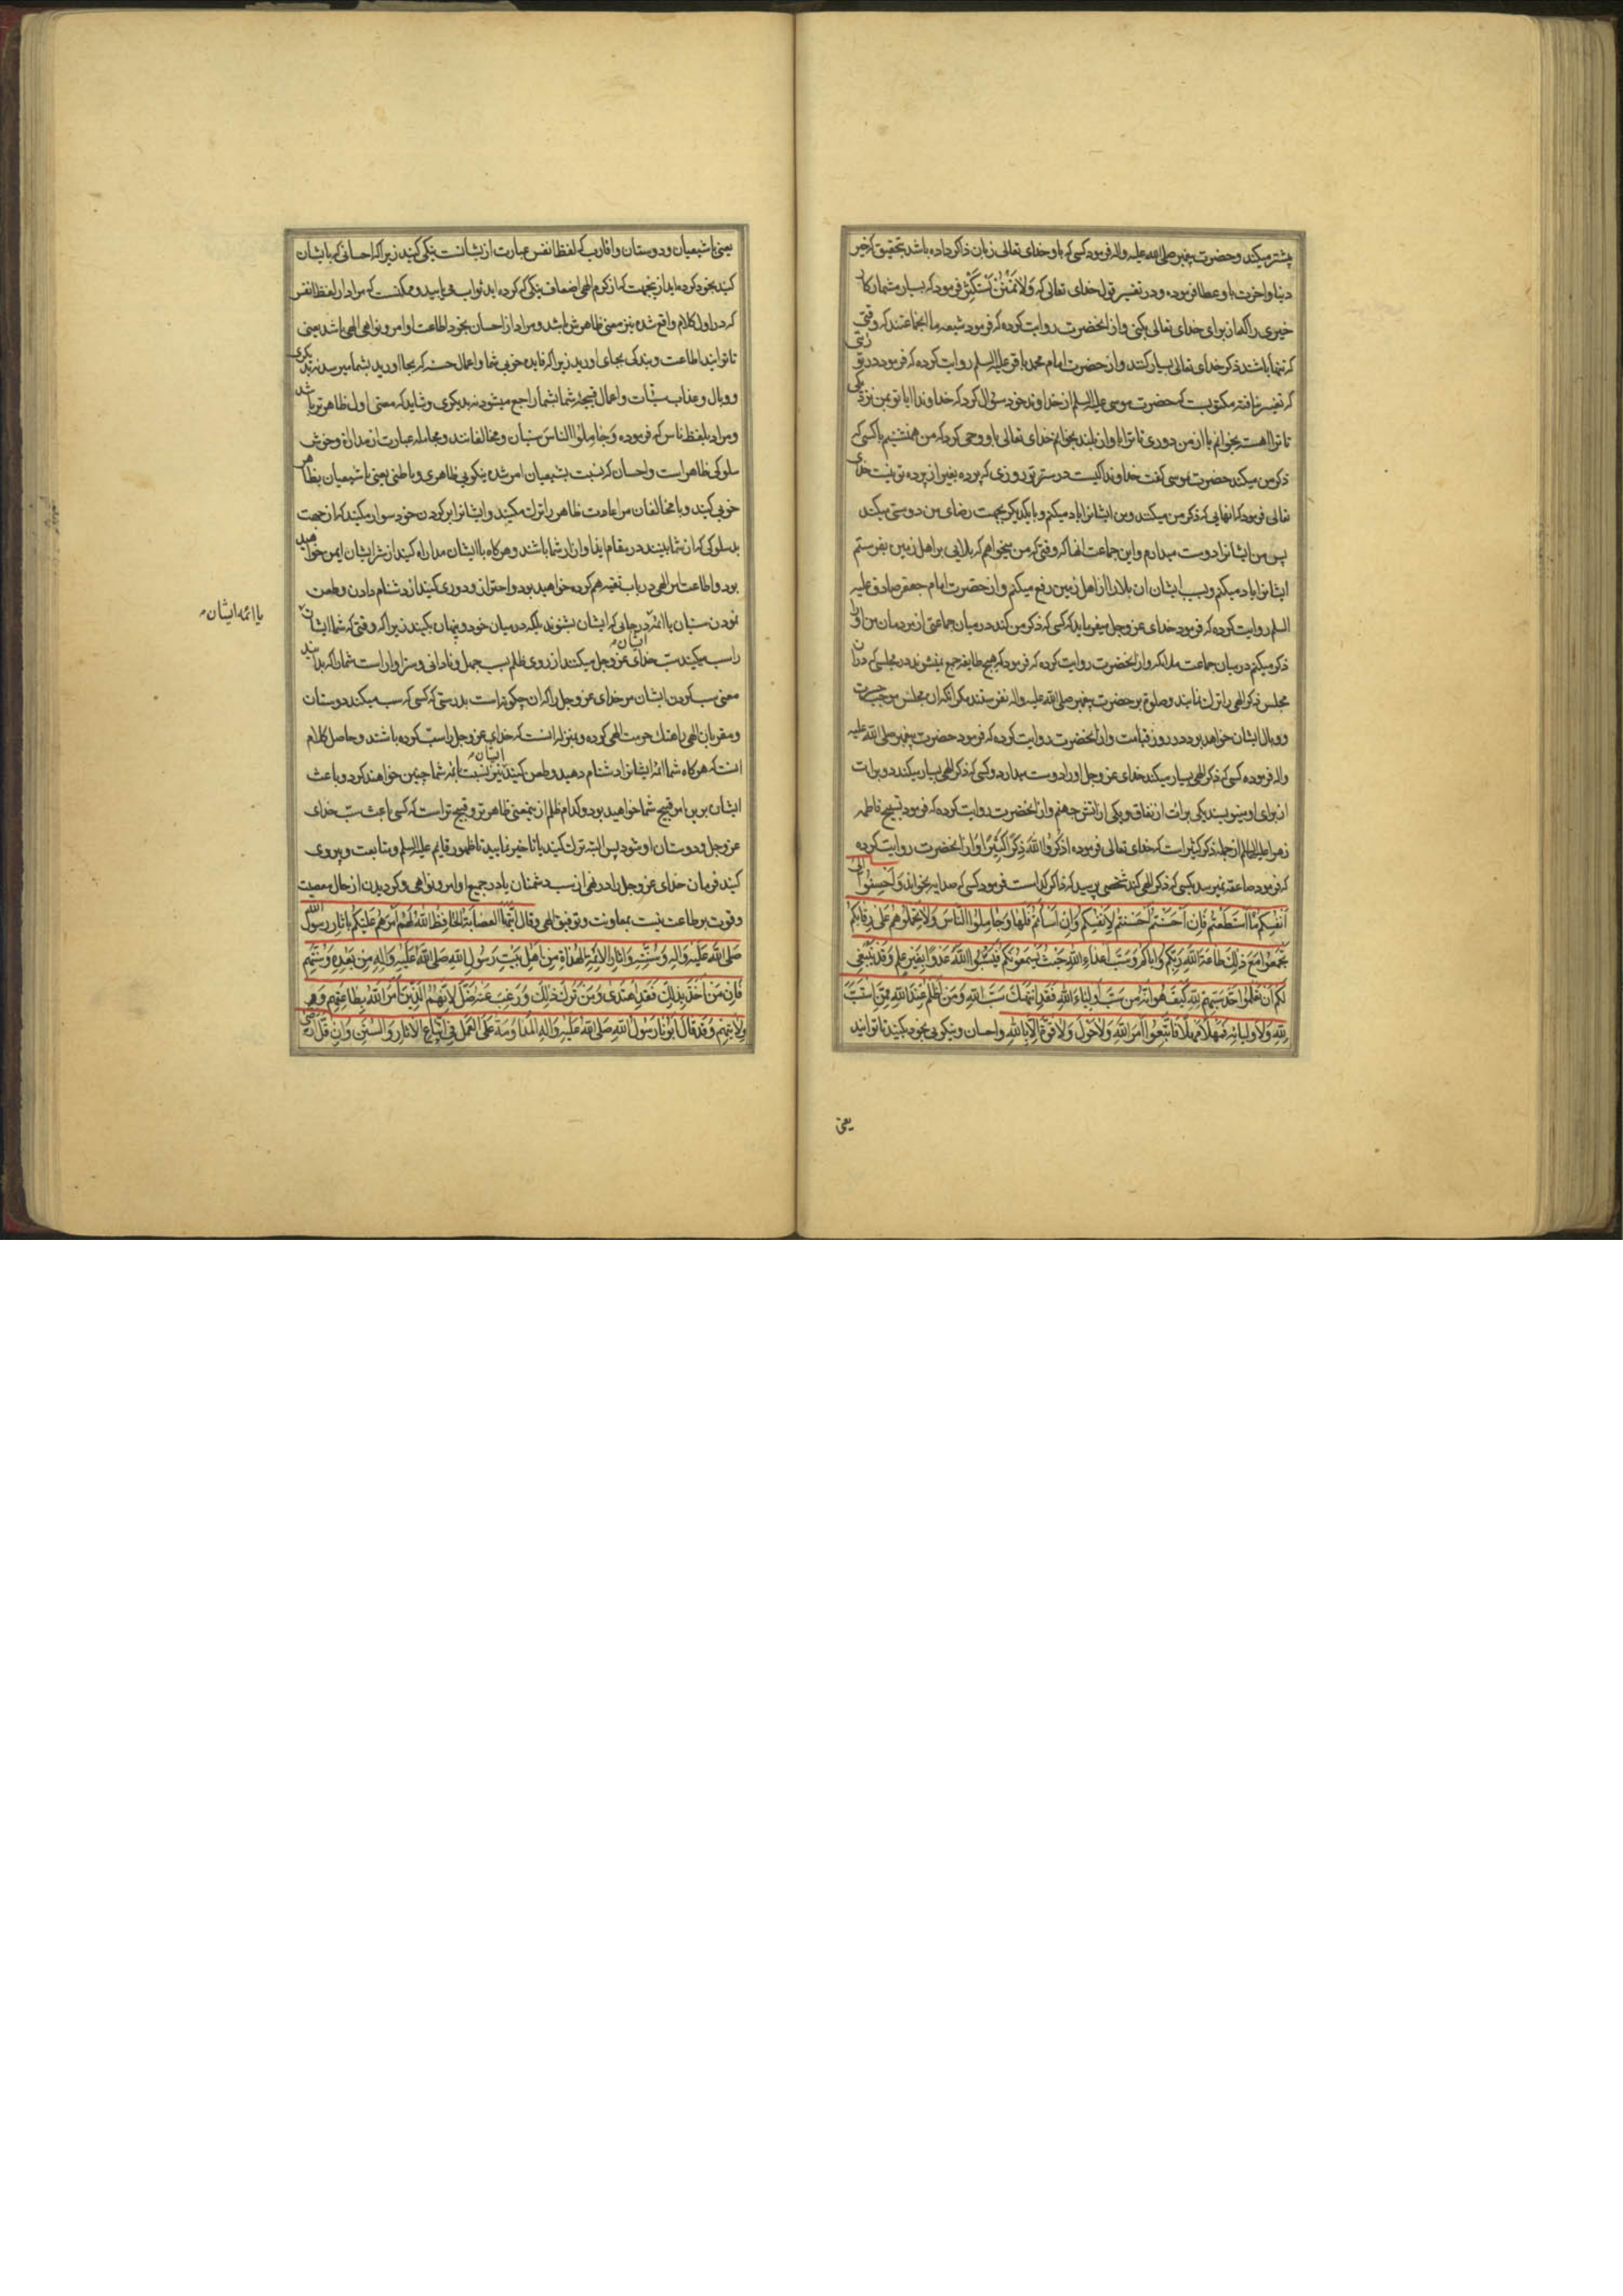 پشتر میکند و حضرت پیغمبر صلی الله علیه و اله فرمود کسی که باو خدای تعالی زبان ذاکر داده باشد بتحقیق که خیر
دنیا و اخرت باو عطا فرموده و در تفسیر قول خدای تعالی که وَلا تَمْنُنْ تَسْتَكْثِرُ فرمود که بسیار مشمار کار
خیری را که از برای خدای تعالی بکنی و از انحضرت روایت کرده که فرمود شیعه ما انجماعتند که وقتی
که تنها باشند ذکر خدای تعالی بسیار کنند و از حضرت امام محمد باقر علیه السلم روایت کرده که فرمود در توریتی
که تغییر نیافته مکتوبست که حضرت موسی علیه السلم از خداوند خود سؤال کرد که خداوندا ایا تو بمن نزدیکی
تا ترا اهسته بخوانم یا از من دوری تا ترا باواز بلند بخوانم خدای تعالی باو وحی کرد که من همنشینم با کسی که
ذکر من میکند حضرت موسی گفت خداوندا کیست در ستر تو روزی که پرده بغیر از پرده تو نیست خدای
تعالی فرمود که انهایی که ذکر من میکنند و من ایشانرا یاد میکنم و با یکدیگر بجهت رضای من دوستی میکنند
پس من ایشانرا دوست میدارم و این جماعت انها که وقتی که من میخواهم که بلایی بر اهل زمین بفرستم
ایشانرا یاد میکنم و بسبب ایشان ان بلا را از اهل زمین رفع میکنم و از حضرت امام جعفر صادق علیه
السلم روایت کرده که فرمود خدای عز و جل میفرماید که کسی که ذکر من کند در میان جماعتی از مردمان من او را
ذکر میکنم در میان جماعت ملائکه و از انحضرت روایت کرده که فرمود که هیچ طایفه جمع نمیشوند در مجلسی که در ان
مجلس ذکر الهی را ترک نمایند و صلوة بر حضرت پیغمبر صلی الله علیه و اله نفرستند مگر انکه ان مجلس موجب حسرت
و وبال ایشان خواهد بود در روز قیامت و از انحضرت روایت کرده که فرمود حضرت پیغمبر صلی الله علیه
و اله فرموده کسی که ذکر الهی بسیار میکند خدای عز و جل او را دوست میدارد و کسی که ذکر الهی بسیار میکند دو برات
از برای او مینویسند یکی برات از نفاق و یکی از اتش جهنم و از انحضرت روایت کرده که فرمود تسبیح فاطمه
زهرا علیها السلم از جمله ذکر کثیر است که خدای تعالی فرموده اذْكُرُوا اللهَ ذِكْرًا كَثِيرًا و از انحضرت روایت کرده
که فرمود صاعقه نمیرسد بکسی که ذکر الهی کند شخصی پرسید که ذاکر کدام است فرمود کسی که صد ایه بخواند وَاَحْسِنُوا اِلی
اَنْفُسِكُمْ مَا اسْتَطَعْتُمْ فَاِنْ اَحْسَنْتُمْ اَحْسَنْتُمْ لِاَنْفُسِكُمْ وَاِنْ اَسَأْتُمْ فَلَهَا وَجَامِلُوا النَّاسَ وَلَا تَحْمِلُوهُمْ عَلَى رِقَابِكُمْ
تَجْمَعُوا مَعَ ذٰلِكَ طَاعَةَ اللهِ رَبِّكُمْ وَاِيَّاكُمْ وَسَبَّ اَعْدَاءِ اللهِ حَيْثُ يَسْمَعُونَكُمْ فَيَسُبُّوا اللهَ عَدْوًا بِغَيْرِ عِلْمٍ وَقَدْ يَنْبَغِي
لَكُمْ اَنْ تَعْلَمُوا حَدَّ سَبِّهِمْ لِلّٰهِ كَيْفَ هُوَ اِنَّهُ مَنْ سَبَّ اَوْلِيَاءَ اللهِ فَقَدِ انْتَهَكَ سَبَّ اللهِ وَمَنْ اَظْلَمُ عِنْدَ اللهِ مِمَّنِ اسْتَسَبَّ
لِلّٰهِ وَلِاَوْلِيَائِهِ فَمَهْلًا مَهْلًا فَاتَّبِعُوا اَمْرَ اللهِ وَلَا حَوْلَ وَلَا قُوَّةَ اِلَّا بِاللهِ و احسان و نیکویی بخود بکنید تا توانید
یعنی
یعنی با شیعیان و دوستان و اقارب که لفظ انفس عبارت از یشانست نیکی کنید زیرا که احسانی که با یشان
کنید بخود کرده اید از ینجهت که از کرم الهی اضعاف نیکی که کرده اید ثواب می یابید و ممکنست که مراد از لفظ انفس
که در اول کلام واقع شده نیز معنی ظاهرش باشد و مراد از احسان بخود اطاعت اوامر و نواهی الهی باشد یعنی
تا توانید اطاعت و بندگی بجای اورید زیرا که فایده خوبی شما و اعمال حسنه که بجا اورید بشما میرسد نه بدیگری
و وبال و عذاب سیئات و اعمال قبیحه شما بشما راجع میشود نه بدیگری و شاید که معنی اول ظاهرتر باشد
و مراد بلفظ ناس که فرموده وَجَامِلُوا النَّاسَ سنیان و مخالفانند و مجامله عبارت از مدارا و خوش
سلوکی ظاهر است و احسان که نسبت بشیعیان امر شده نیکویی ظاهری و باطنی یعنی با شیعیان بظاهر
خوبی کنید و با مخالفان مراعات ظاهر را ترک مکنید و ایشانرا بر گردن خود سوار مکنید که از جهت
بد سلوکی که از شما بینند در مقام ایذا و ازار شما باشند و هرگاه با ایشان مدارا کنید از شر ایشان ایمن خواهید
بود و اطاعت امر الهی در باب تقیه هم کرده خواهید بود و احتراز و دوری کنید از دشنام دادن و طعن
نمودن سنیان یا ائمه در جایی که ایشان بشنوند بلکه در میان خود و پنهان بکنید زیرا که وقتی که شما ایشان
یا ائمه ایشان
را سب میکنید سبّ خدای عز و جل میکنند از روی ظلم بسبب جهل و نادانی و سزاوار است شما را که بدانید
معنی سب کردن ایشان مر خدای عز و جل را که ان چگونه است بدرستی که کسی که سب میکند دوستان
و مقربان الهی را هتک حرمت الهی کرده و بمنزله انست که خدای عز و جل را سبّ کرده باشند و حاصل کلام
انست که هرگاه شما ائمه ایشانرا دشنام دهید و طعن کنید ایشان نیز نسبت بائمه شما چنین خواهند کرد و باعث
ایشان برین امر قبیح شما خواهید بود و کدام ظلم از ینمعنی ظاهرتر و قبیح تر است که کسی باعث سبّ خدای
عز و جل و دوستان او شود پس البته ترک کنید یا تاخیر نمایید تا ظهور قایم علیه السلم و متابعت و پیروی
کنید فرمان خدای عز و جل را در نهی از سب دشمنان یا در جمیع اوامر و نواهی و گردیدن از حال معصیت
و قوت بر طاعت نیست بمعاونت و توفیق الهی وَقَالَ اَيَّتُهَا الْعِصَابَةُ الْحَافِظُ اللهُ لَهُمْ اَمْرَهُمْ عَلَيْكُمْ بِاٰثَارِ رَسُولِ اللهِ
صَلَّى اللهُ عَلَيْهِ وَاٰلِهِ وَسُنَّتِهِ وَاٰثَارِ الْاَئِمَّةِ الْهُدَاةِ مِنْ اَهْلِ بَيْتِ رَسُولِ اللهِ صَلَّى اللهُ عَلَيْهِ وَاٰلِهِ مِنْ بَعْدِهِ وَسُنَّتِهِمْ
فَاِنَّ مَنْ اَخَذَ بِذٰلِكَ فَقَدِ اهْتَدٰى وَمَنْ تَرَكَ ذٰلِكَ وَرَغِبَ عَنْهُ ضَلَّ لِاَنَّهُمْ الَّذِينَ اَمَرَ اللهُ بِطَاعَتِهِمْ وَ
وَلَايَتِهِمْ وَقَدْ قَالَ اَبُونَا رَسُولُ اللهِ صَلَّى اللهُ عَلَيْهِ وَاٰلِهِ الْمُدَاوَمَةُ عَلَى الْعَمَلِ فِي اتِّبَاعِ الْاٰثَارِ وَالسُّنَنِ وَاِنْ قَلَّ